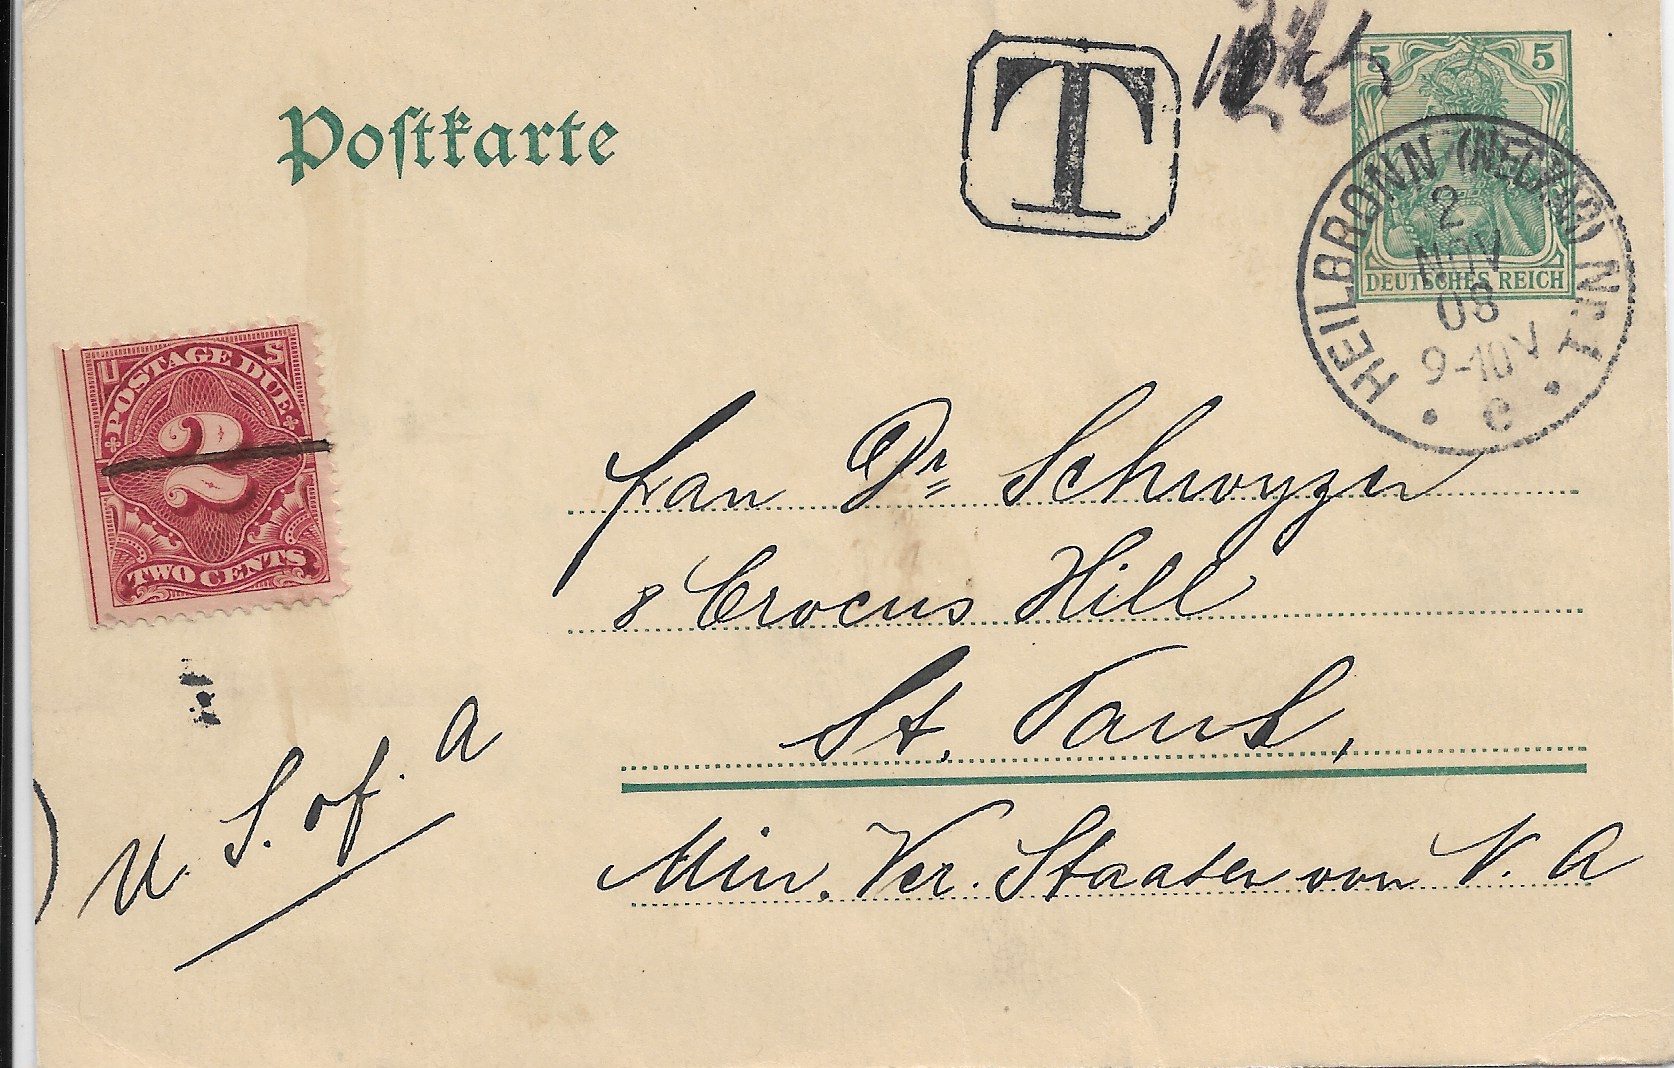 Postkarte
T
5 5
DEUTSCHES REICH
HEILBRONN (NECKAR) Nr. 1
2
NOV
08
9-10 V
• c •
U S
POSTAGE DUE
2
TWO CENTS
Frau Dr. Schwyzer
8 Crocus Hill
St. Paul,
Min. Ver. Staaten von N. A
U. S. of. A